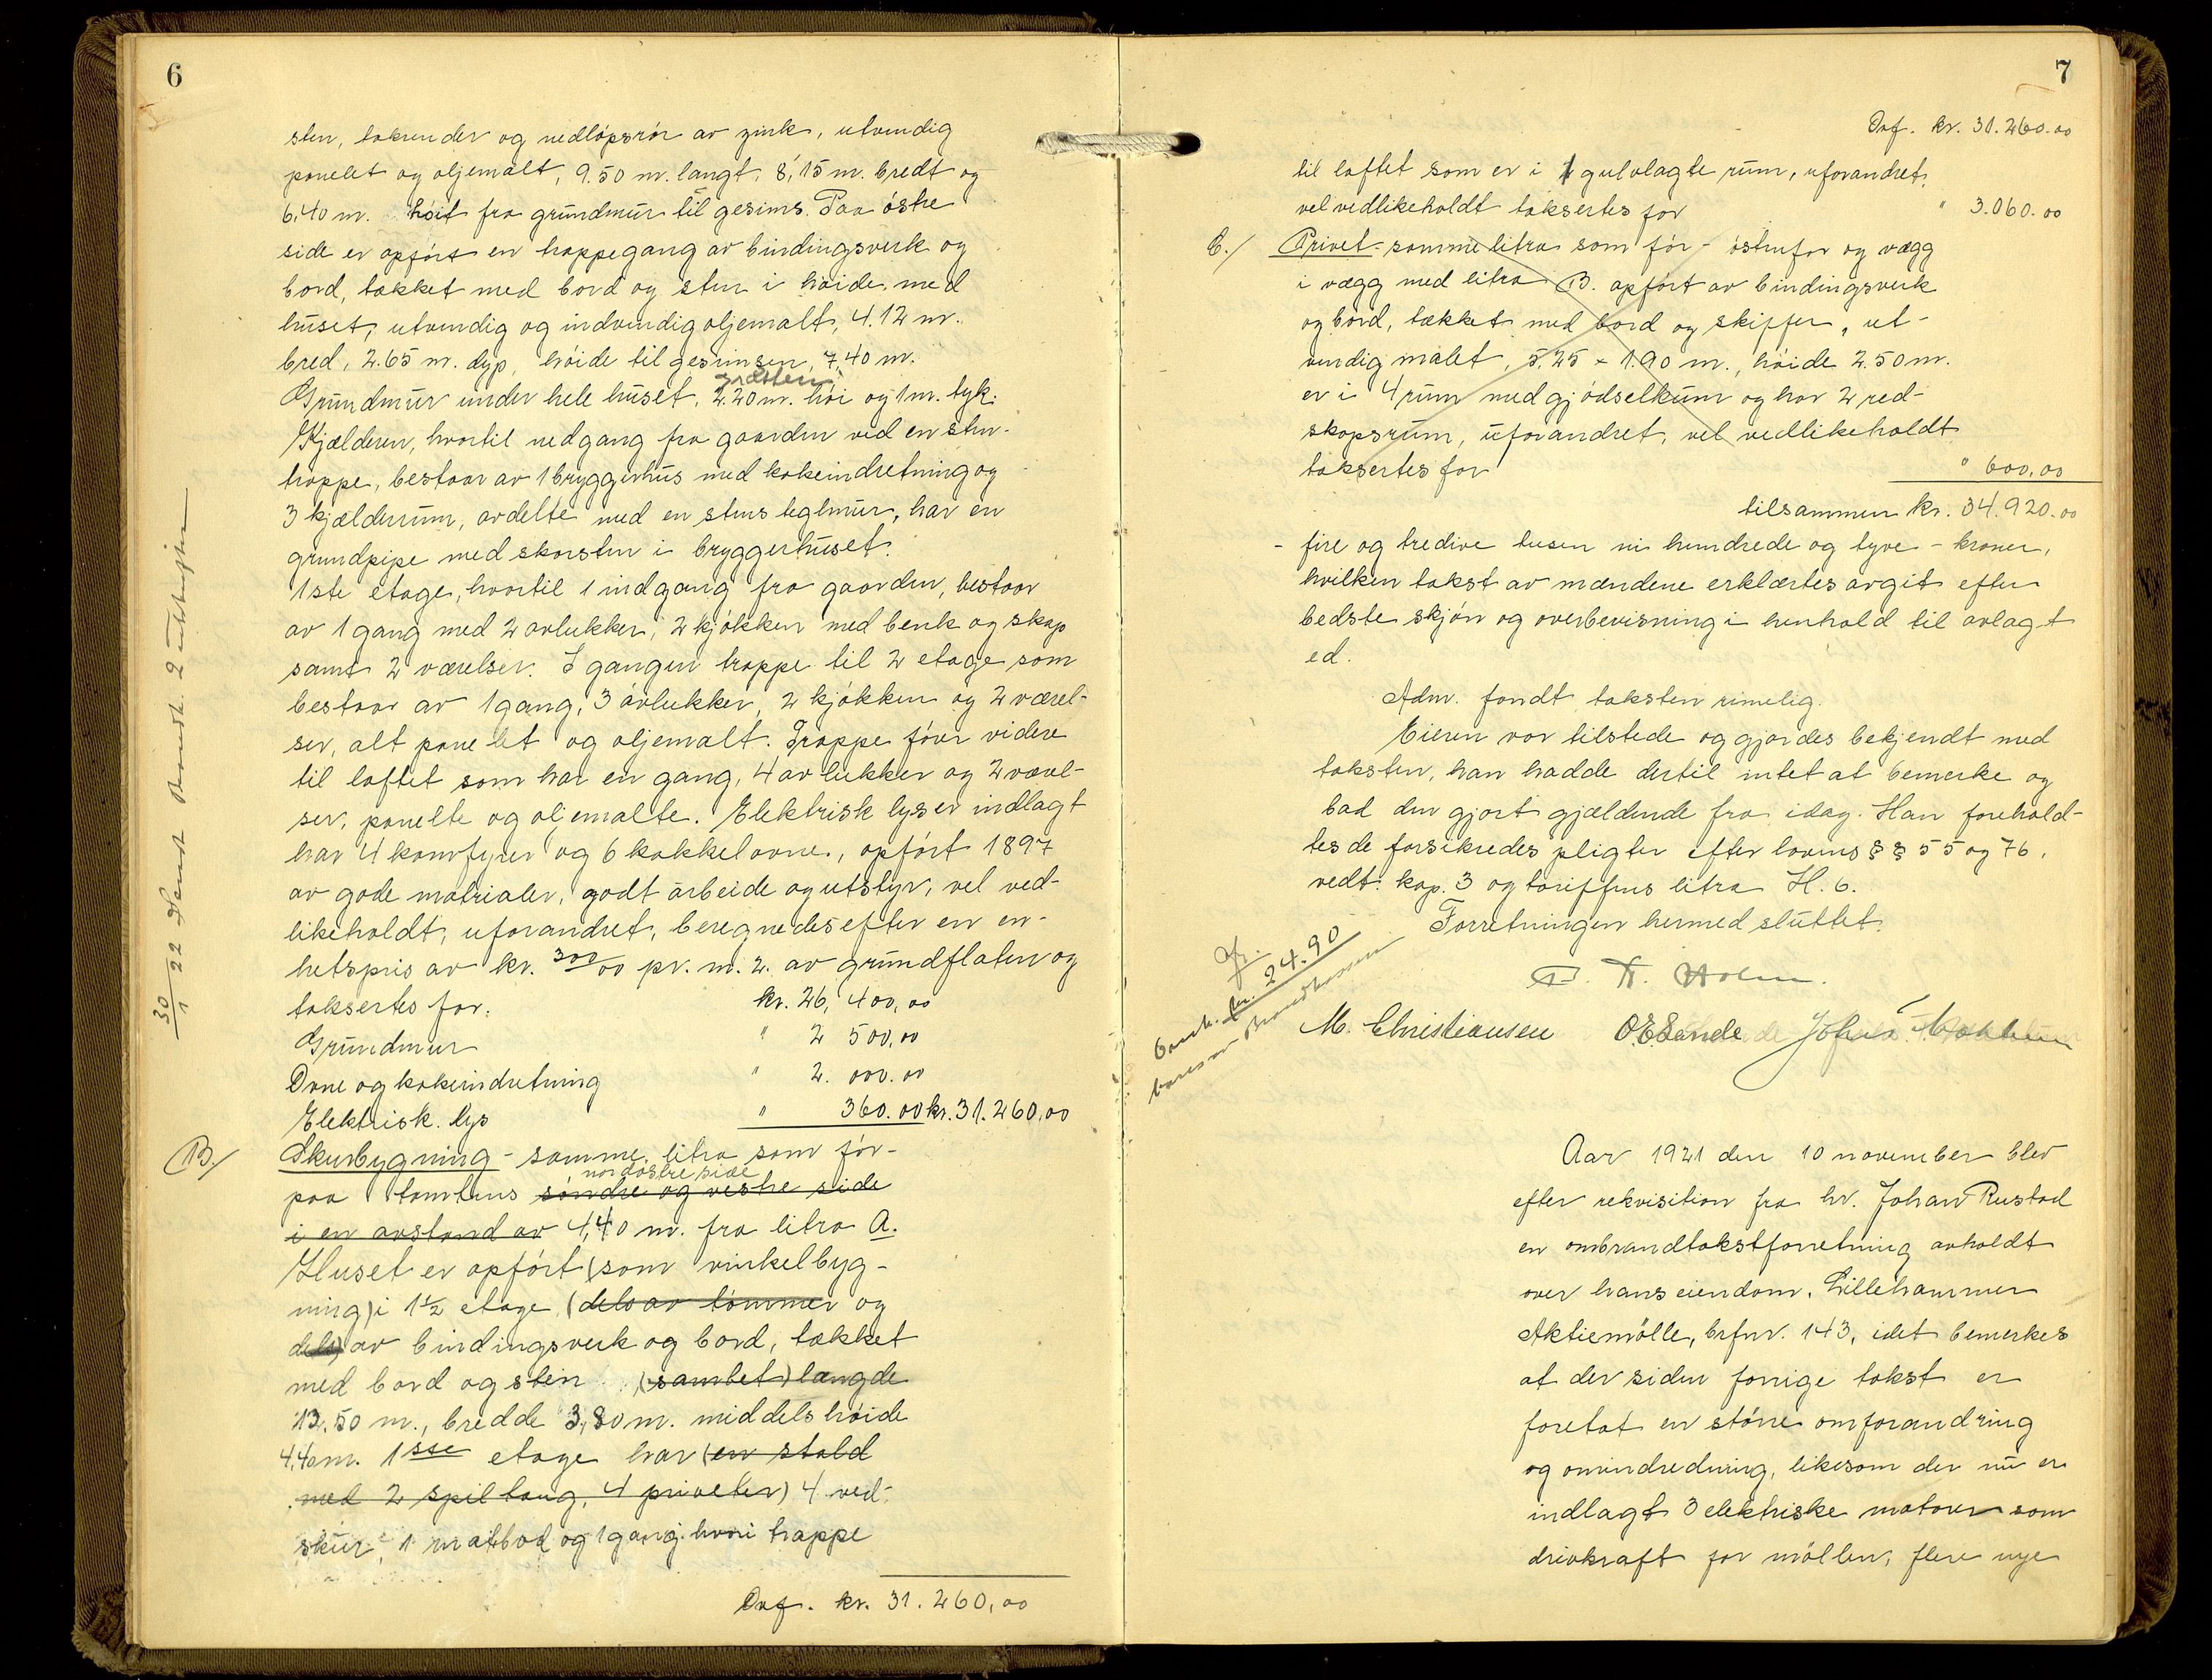 6
sten, takrender og nedløpsrør av zink, utvendig
panelet og oljemalt, 9.50 m. langt, 8,15 m. bredt og
6,40 m. høit fra grundmur til gesims. Paa østre
side er opført en trappegang av bindingsverk og
bord, tækket med bord og sten i høide med
huset, utvendig og indvendig oljemalt, 4.12 m.
bred, 2.65 m. dyp, høide til gesimsen 7,40 m.
Grundmur under hele huset, 2.20 m. høi og 1 m. tyk.
Kjælderen, hvortil nedgang fra gaarden ved en sten-
trappe, bestaar av 1 bryggerhus med kokeindretning og
3 kjælderrum, avdelte med en stens teglmur, har en
grundpipe med skorsten i bryggerhuset.
1ste etage, hvortil 1 indgang fra gaarden, bestaar
av 1 gang med 2 avlukker, 2 kjøkken med benk og skap
samt 2 værelser. I gangen trappe til 2 etage som
bestaar av 1 gang, 3 avlukker, 2 kjøkken og 2 værel-
ser, alt panelet og oljemalt. Trappe fører videre
til loftet som har en gang, 4 avlukker og 2 værel-
ser, panelte og oljemalte. Elektrisk lys er indlagt
har 4 komfyrer og 6 kakkelovne, opført 1897
av gode matrialer, godt arbeide og utstyr, vel ved-
likeholdt, uforandret, beregnedes efter en en-
hetspris av kr. 300/00 pr. m. 2. av grundflaten og
taksertes for: kr. 26,400,00
Grundmur " 2 500,00
Ovne og kokeindretning " 2.000.00
Elektrisk. lys " 360.00 kr. 31.260,00
B./ Skurbygning - samme litra som før-
nordøstre side
paa tomtens søndre og vestre side
i en avstand av 4,40 m. fra litra A.
Huset er opført (som vinkelbyg-
ning) i 1½ etage (dels av tømmer og
dels) av bindingsverk og bord, tækket
med bord og sten (samlet) længde
13,50 m., bredde 3,80 m. middels høide
4,40 m. 1ste etage har (en stald
med 2 spiltaug, 4 priveter) 4 ved-
skur, 1 matbod og 1 gang hvori trappe
Ovf. kr. 31.260,00
7
Ovf. kr. 31.260.00
til loftet som er i 1 gulvlagte rum, uforandret,
vel vedlikeholdt taksertes for " 3.060.00
C./ Privet - samme litra som før - østenfor og vægg
i vægg med litra B. opført av bindingsverk
og bord, tækket med bord og skiffer, ut-
vendig malet, 5,25 × 1.90 m., høide 2.50 m.
er i 4 rum med gjødselkum og har 2 red-
skapsrum, uforandret, vel vedlikeholdt
taksertes for " 600,00
tilsammen kr. 34.920.00
- fire og tredive tusen ni hundrede og tyve - kroner,
hvilken takst av mændene erklærtes avgit efter
bedste skjøn og overbevisning i henhold til avlagt
ed.
Adm. fandt taksten rimelig.
Eieren var tilstede og gjordes bekjendt med
taksten, han hadde dertil intet at bemerke og
bad den gjort gjældende fra idag. Han forehold-
tes de forsikredes pligter efter lovens §§ 55 og 76,
vedt. kap. 3 og tariffens litra H. 6.
Forretningen hermed sluttet.
kr. 24.90
T. Holm.
M. Christiansen O. E. Sande
Aar 1921 den 10 november blev
efter rekvisition fra hr. Johan Rustad
en ombrandtakstforretning avholdt
over hans eiendom, Lillehammer
Aktiemølle, brfnr. 143, idet bemerkes
at der siden forrige takst er
foretat en større omforandring
og omindredning, likesom der nu er
indlagt 3 elektriske motorer som
drivkraft for møllen, flere nye